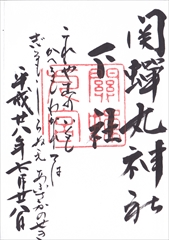 関蟬丸神社
下社
これやこの
かへるもわかれては
しらぬもあふさかのせき
平成廿八年七月廿八日